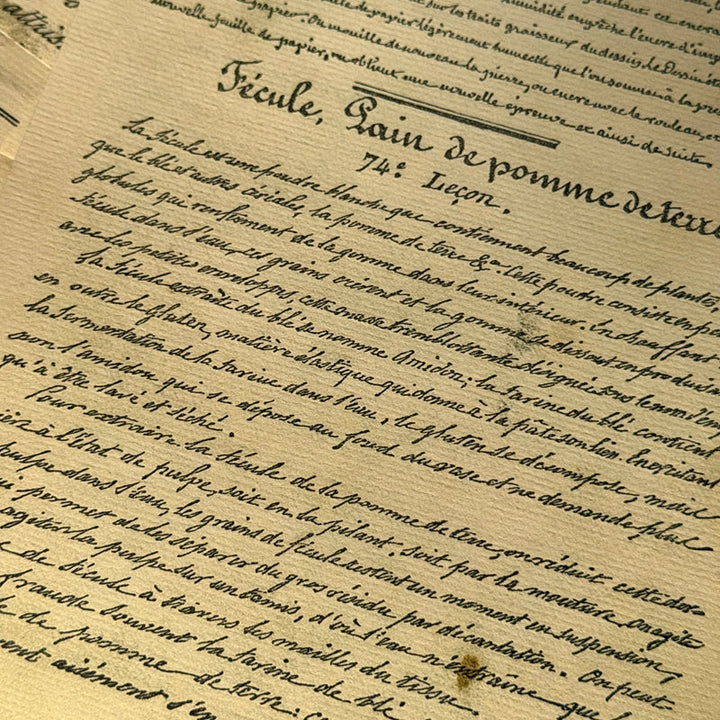 attis.
pendant ce
humidité empêche l'encre d'imp
sur les traits graisseux du dessin. Dessiné
papier. On mouille de papier légèrement humecté que l'on soumet à la pre
nouvelle feuille de papier, on obtient une nouvelle épreuve et ainsi de suite.
Fécule, Pain de pomme de terre
74e Leçon.
La fécule est une poudre blanche que contiennent beaucoup de plantes
que le blé et autres céréales, la pomme de terre &a. Cette poudre consiste en p
globules qui renferment de la gomme dans leur intérieur. En chauffant
fécule dans l'eau, ces grains crèvent et la gomme se dissout en produisan
avec les petites enveloppes cette masse tremblottante désignée sous le nom d'em
La fécule extraite du blé se nomme Amidon; la farine du blé contient
en outre le Gluten, matière élastique qui donne à la pâte son lien. En excitant
la fermentation de la farine dans l'eau, le gluten se décompose, mais
non l'amidon qui se dépose au fond du vase et ne demande plus
qu'à être lavé et séché.
Pour extraire la fécule de la pomme de terre, on réduit cette der
ière à l'état de pulpe, soit en la pilant, soit par la mouture on agite
pulpe dans l'eau, les grains de fécule restent un moment en suspension,
ui permet de les séparer du gros résidu par décantation. On peut
agiter la pulpe sur un tamis, d'où l'eau n'entraîne que
de fécule à travers les mailles du tissu.
fraude souvent la farine de blé
de pomme de terre: c
vent aisément s'en